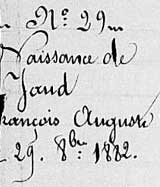 N° 29
Naissance de
Jaud
François Auguste
29. 8bre 1882.